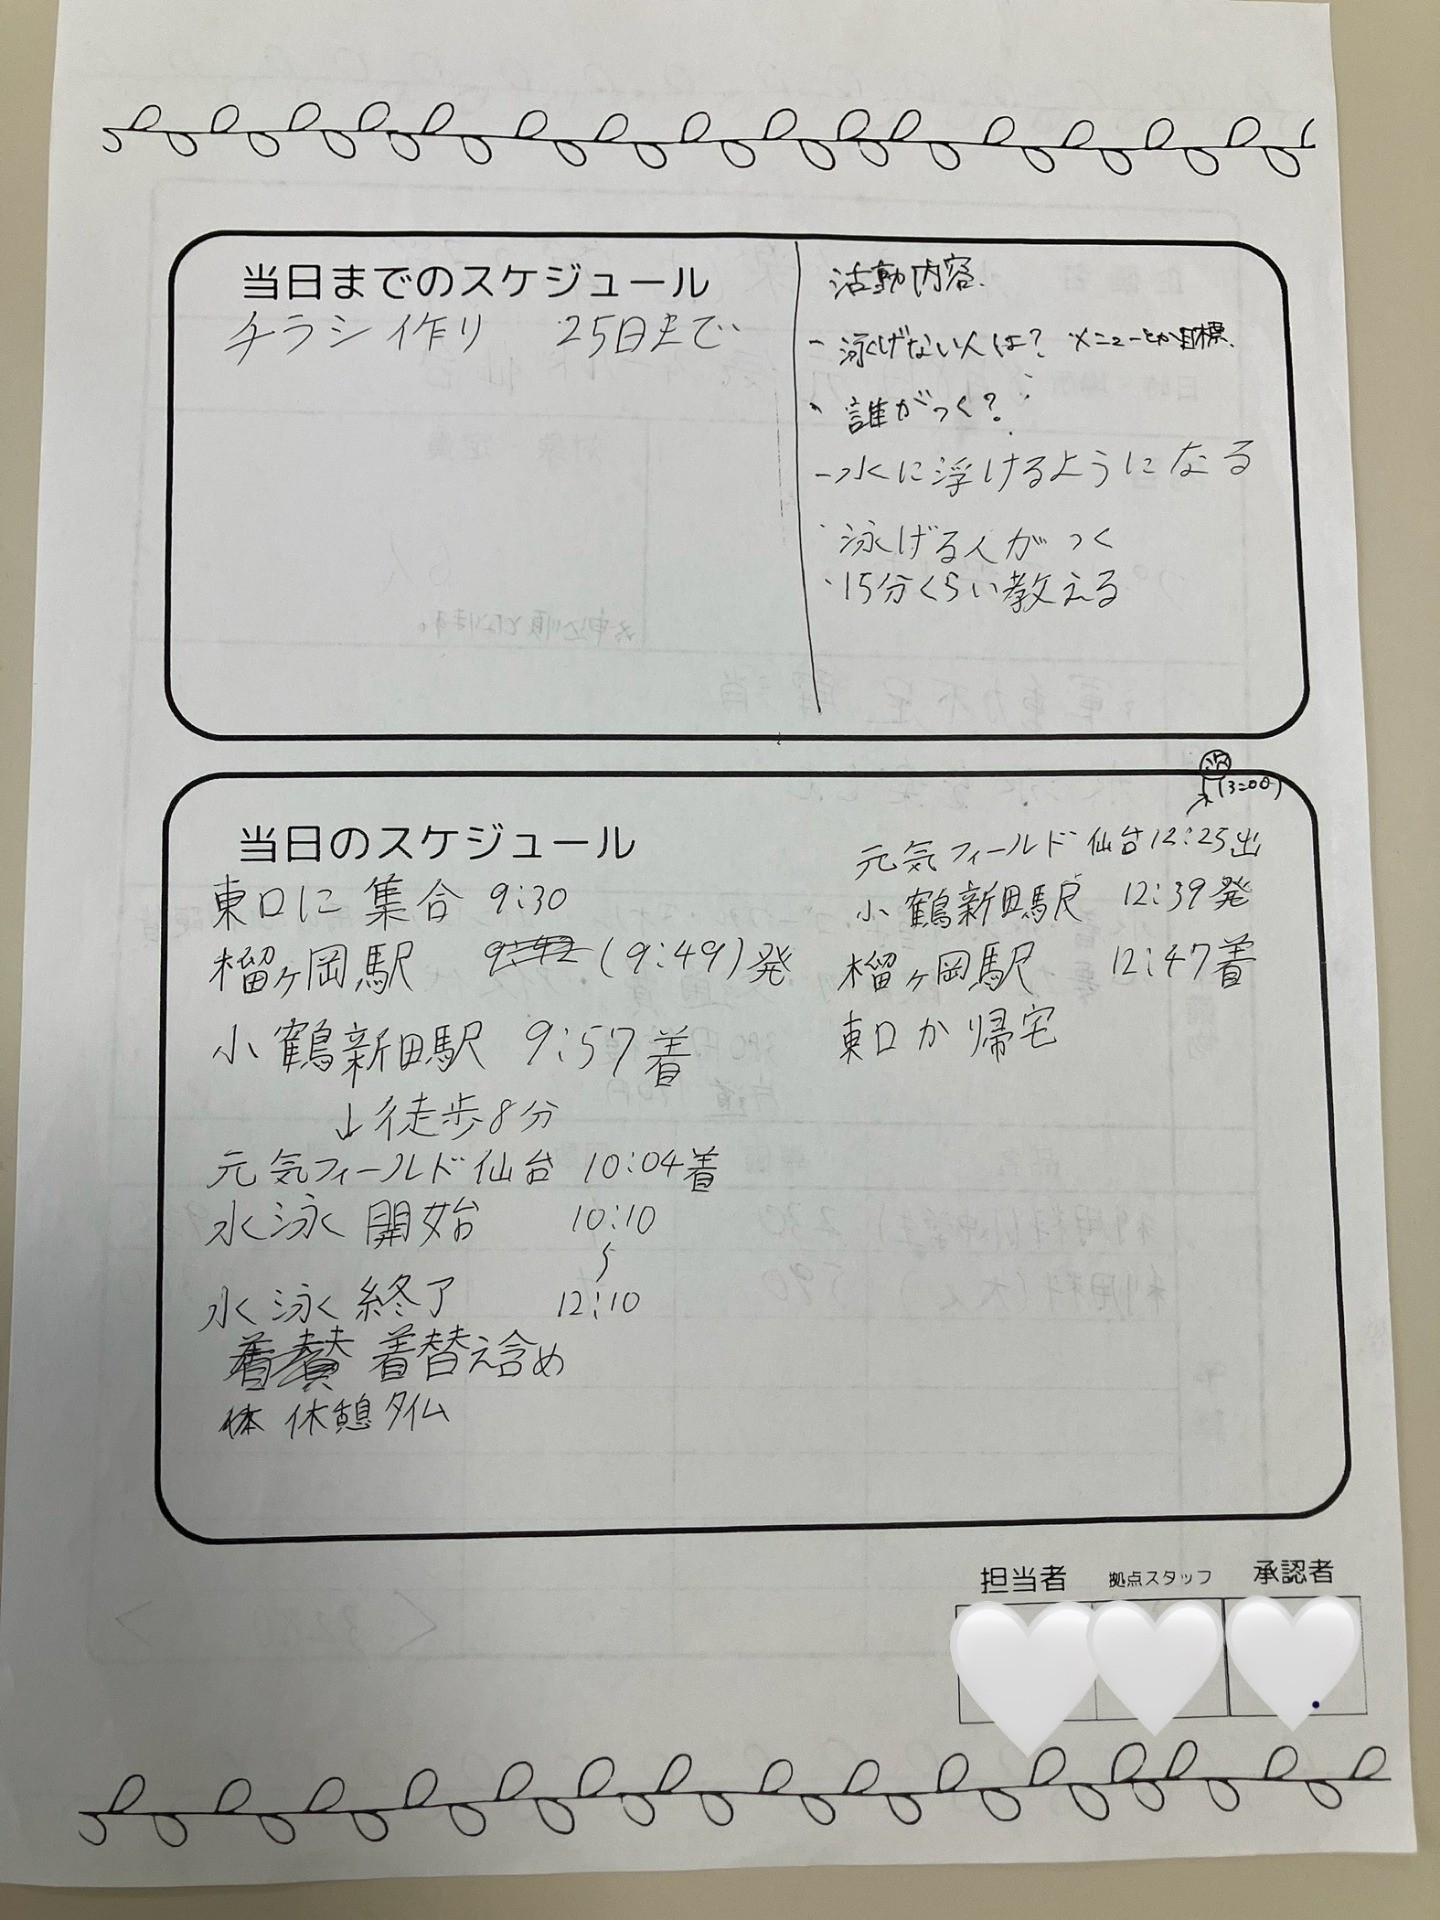 当日までのスケジュール
チラシ作り 25日まで
活動内容
- 泳げない人は? メニューとか目標
・誰がつく?
- 水に浮けるようになる
・泳げる人がつく
・15分くらい教える
当日のスケジュール
東口に集合 9:30
榴ヶ岡駅 (9:49)発
小鶴新田駅 9:57着
↓徒歩8分
元気フィールド仙台 10:04着
水泳開始 10:10
〜
水泳終了 12:10
着替え含め
休憩タイム
元気フィールド仙台12:25出
小鶴新田駅 12:39発
榴ヶ岡駅 12:47着
東口か帰宅
担当者 拠点スタッフ 承認者